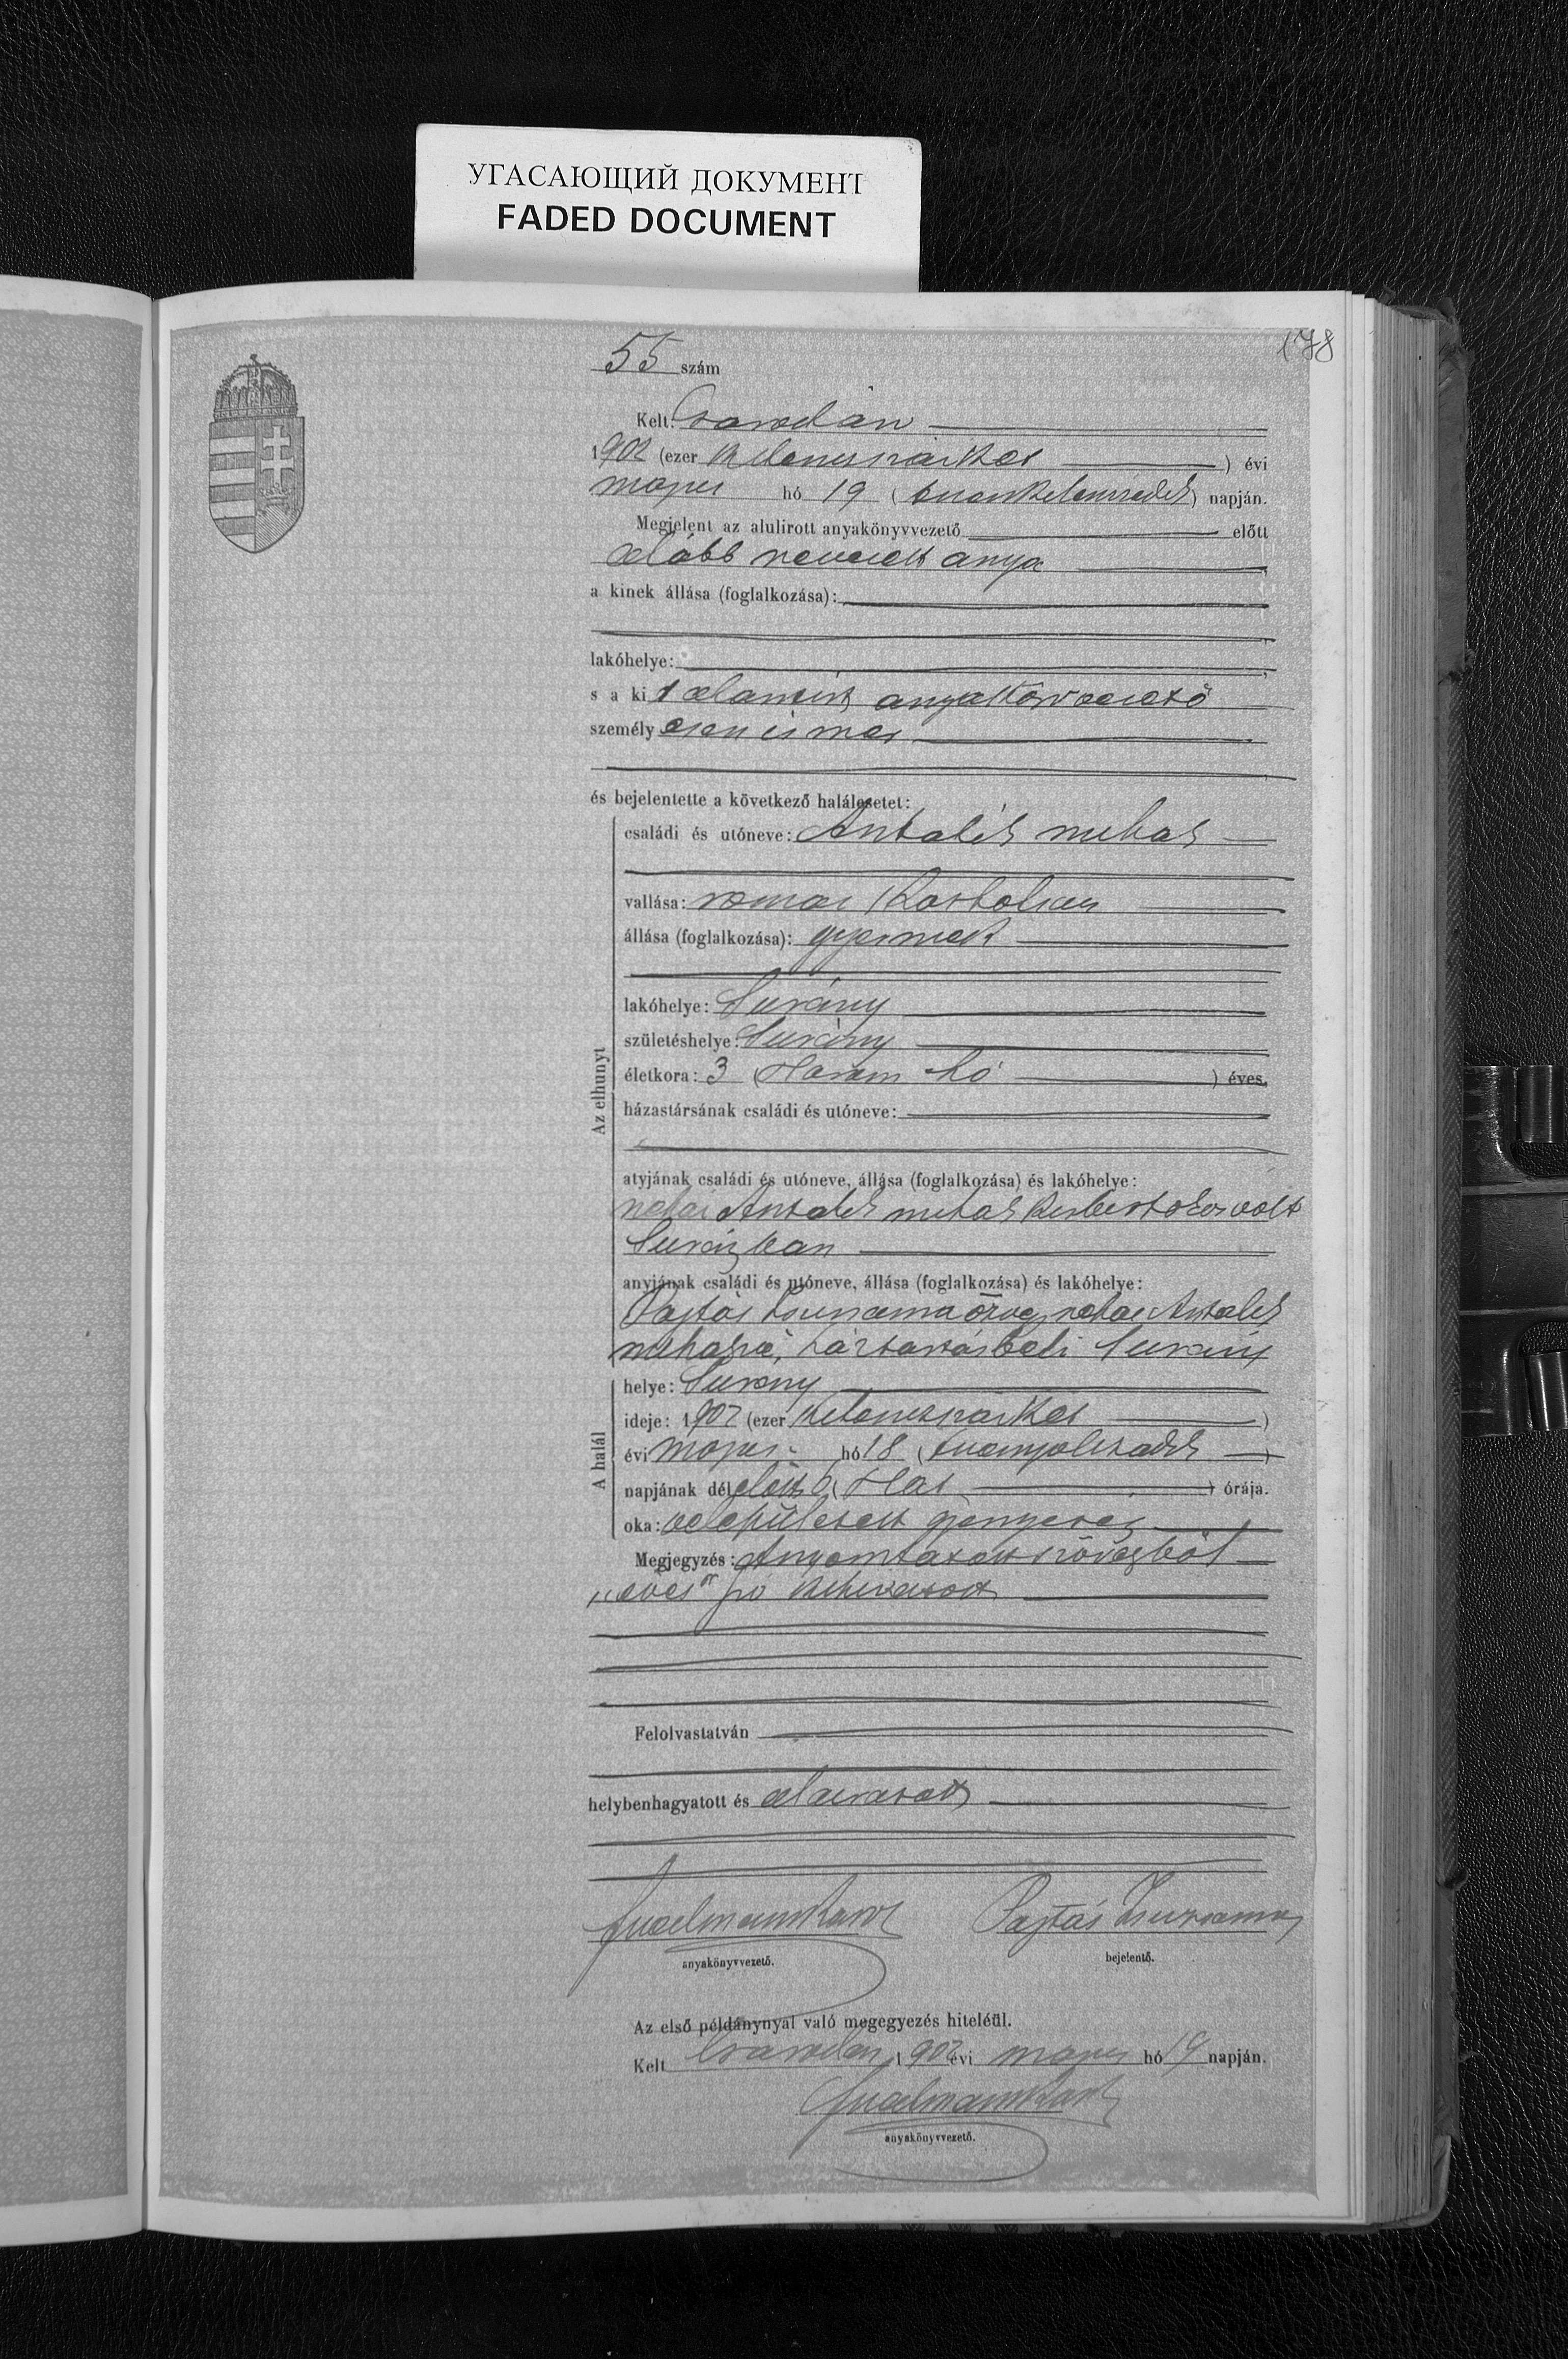 УГАСАЮЩИЙ ДОКУМЕНТ
FADED DOCUMENT
178
55 szám
Kelt: Csarodán
1902 (ezer kilenczszázkét) évi
május hó 19 (tizenkilenczedik) napján.
Megjelent az alulirott anyakönyvvezető előtt
alább nevezett anya
a kinek állása (foglalkozása):
lakóhelye:
s a kit alantirt anyakönyvvezető
személyesen ismer
és bejelentette a következő halálesetet:
családi és utóneve: Antalik Mihál
vallása: római katholikus
állása (foglalkozása): gyermek
lakóhelye: Surány
születéshelye: Surány
életkora: 3 (Három hó) éves.
házastársának családi és utóneve:
Az elhunyt
atyjának családi és utóneve, állása (foglalkozása) és lakóhelye:
néhai Antalik Mihál volt
Surányban
anyjának családi és utóneve, állása (foglalkozása) és lakóhelye:
Pajtás Zsuzsanna özvegy néhai Antalik
Mihályné, háztartásbeli Surány
A halál
helye: Surány
ideje: 1902 (ezer kilenczszázkét)
évi május hó 18 (tizennyolczadik)
napjának délelőtt 6 (Hat) órája.
oka: veleszületett gyengeség
Megjegyzés: A nyomtatott szövegből
„éves" szó kihuzatott
Felolvastatván
helybenhagyatott és aláiratott
anyakönyvvezető.
Pajtás Zsuzsanna
bejelentő.
Az első példánynyal való megegyezés hiteléül.
Kelt Csarodán 1902 évi május hó 19 napján.
anyakönyvvezető.